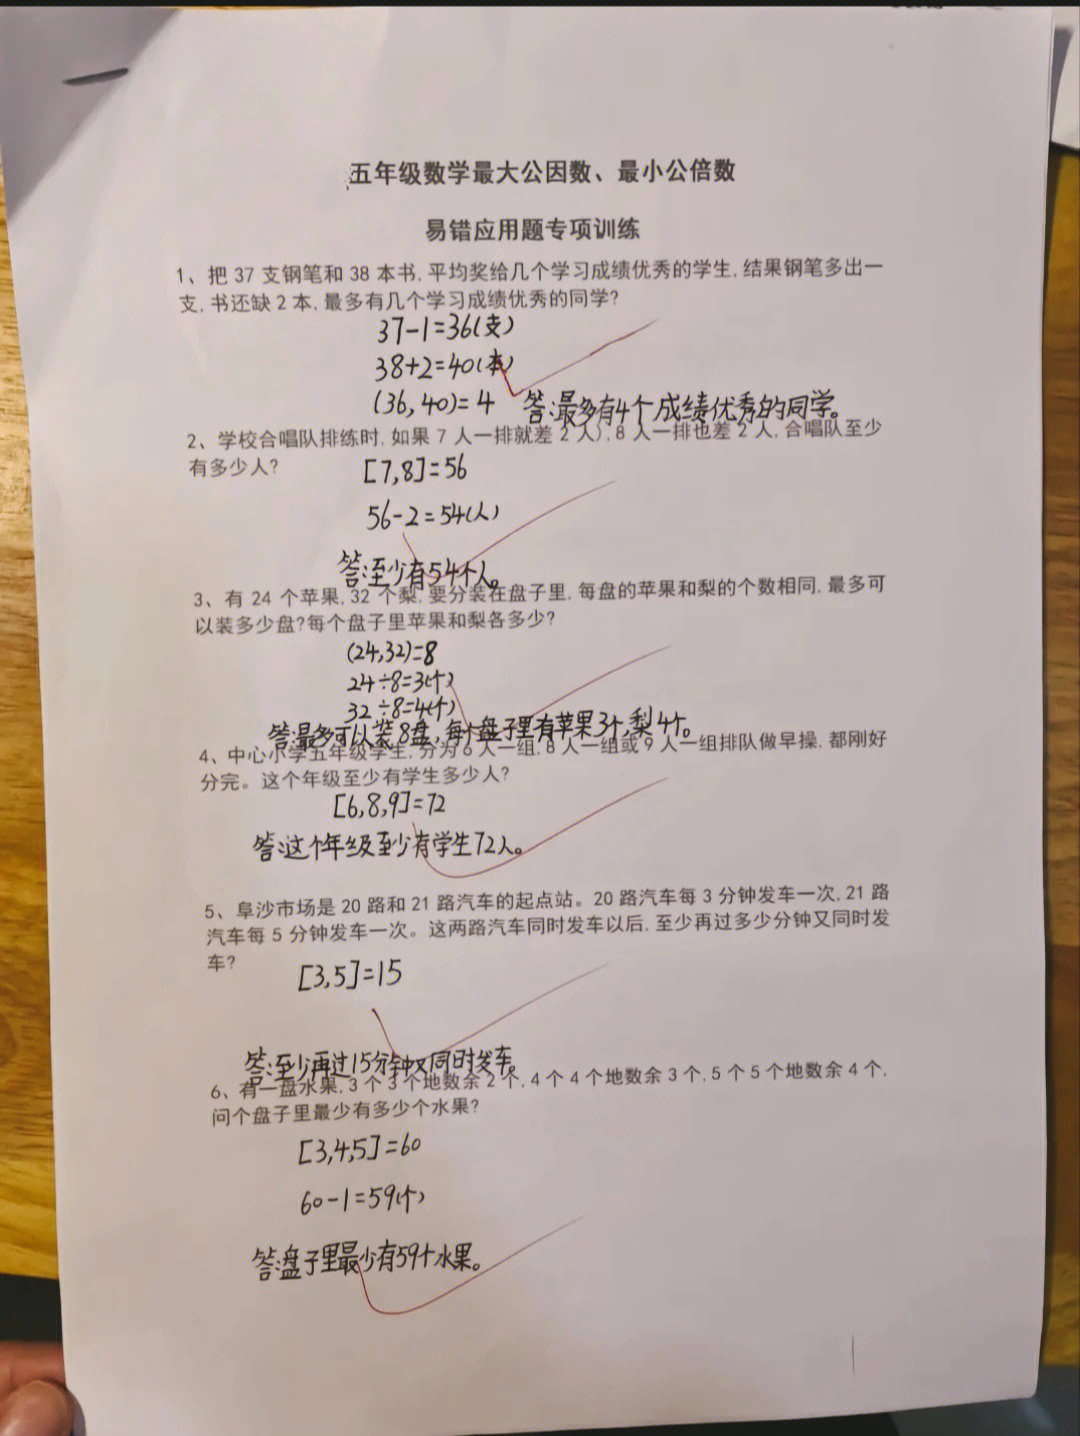 五年级数学最大公因数、最小公倍数
易错应用题专项训练
1、把 37 支钢笔和 38 本书,平均奖给几个学习成绩优秀的学生,结果钢笔多出一
支,书还缺 2 本,最多有几个学习成绩优秀的同学?
37-1=36(支)
38+2=40(本)
(36,40)=4
答:最多有4个成绩优秀的同学。
2、学校合唱队排练时,如果 7 人一排就差 2 人),8 人一排也差 2 人,合唱队至少
有多少人?
[7,8]=56
56-2=54(人)
答:至少有54个人。
3、有 24 个苹果,32 个梨,要分装在盘子里,每盘的苹果和梨的个数相同,最多可
以装多少盘?每个盘子里苹果和梨各多少?
(24,32)=8
24÷8=3(个)
32÷8=4(个)
答:最多可以装8盘,每个盘子里有苹果3个,梨4个。
4、中心小学五年级学生,分为 6 人一组,8 人一组或 9 人一组排队做早操,都刚好
分完。这个年级至少有学生多少人?
[6,8,9]=72
答:这个年级至少有学生72人。
5、阜沙市场是 20 路和 21 路汽车的起点站。20 路汽车每 3 分钟发车一次,21 路
汽车每 5 分钟发车一次。这两路汽车同时发车以后,至少再过多少分钟又同时发
车?
[3,5]=15
答:至少再过15分钟又同时发车。
6、有一盘水果,3 个 3 个地数余 2 个,4 个 4 个地数余 3 个,5 个 5 个地数余 4 个,
问个盘子里最少有多少个水果?
[3,4,5]=60
60-1=59(个)
答:盘子里最少有59个水果。